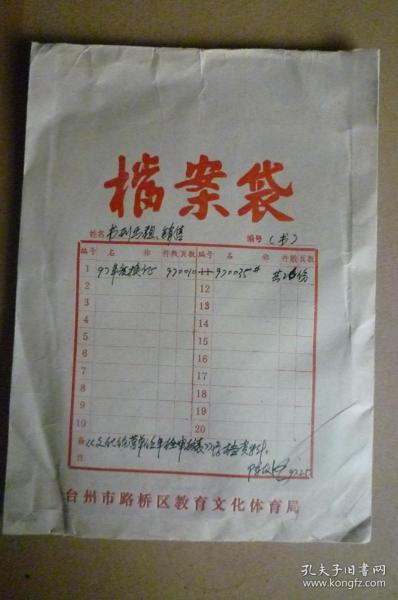 檔案袋
姓名 书刊出租、销售 编号 (书)
编号 名 称 件数 页数 编号 名 称 件数 页数
1 97年度换证 970010 11 970035# 共26份
2 12
3 13
4 14
5 15
6 16
7 17
8 18
9 19
10 20
备注 《文化经营单位年检审核表》
97.25
台州市路桥区教育文化体育局
孔夫子旧书网
www.kongfz.com